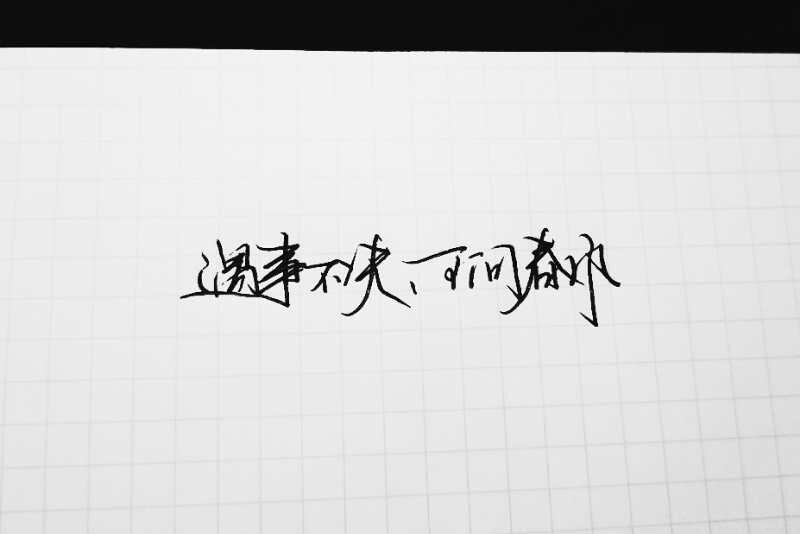 遇事不决、可问春风